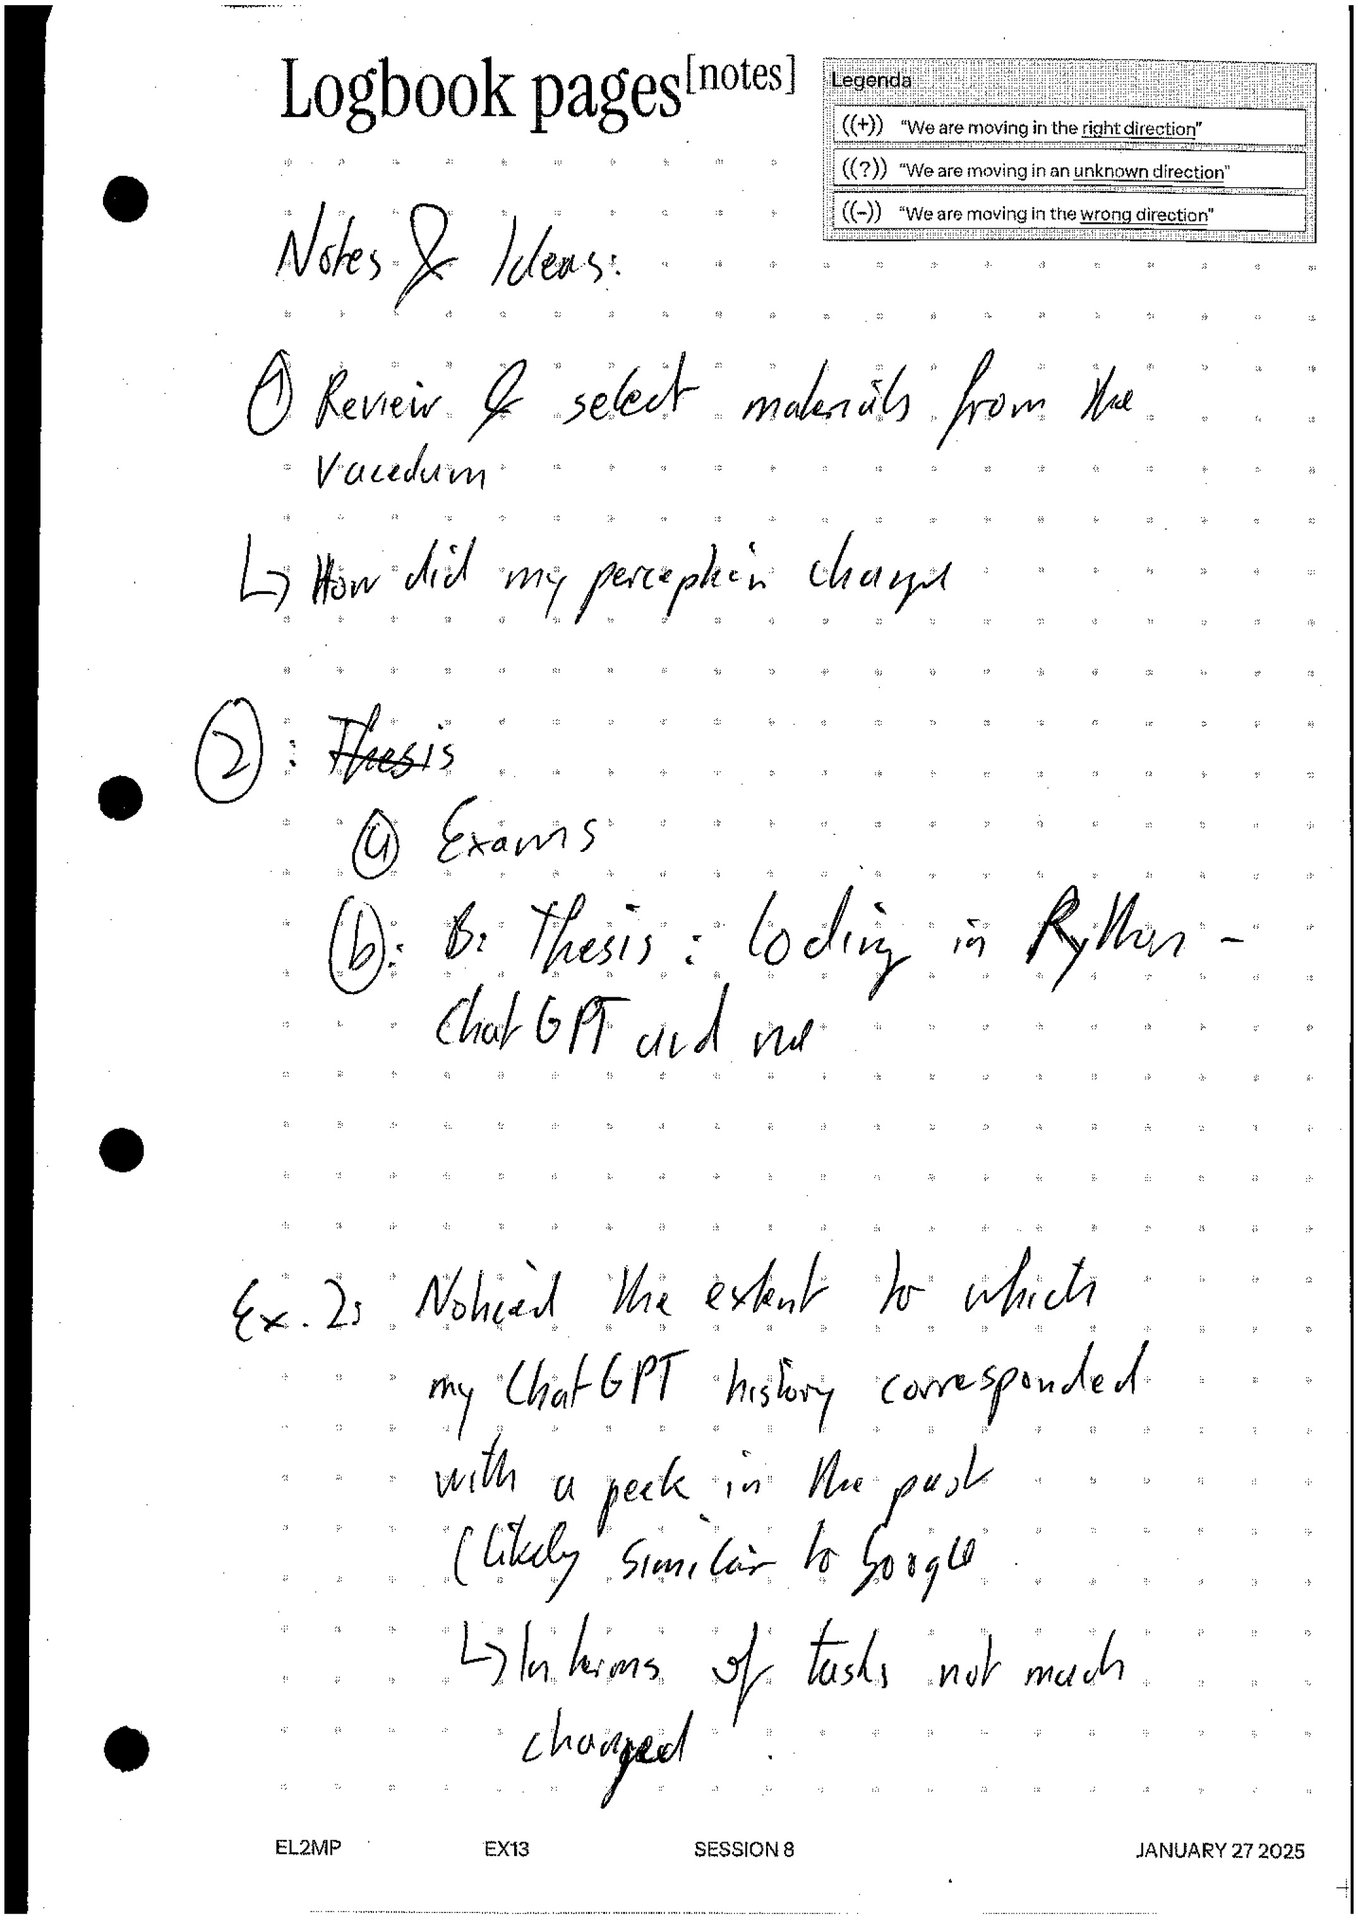 Logbook pages[notes]
Legenda
((+)) "We are moving in the right direction"
((?)) "We are moving in an unknown direction"
((–)) "We are moving in the wrong direction"
Notes & Ideas:
① Review & select materials from the
↳ How did my perception change
② : Thesis
ⓐ Exams
ⓑ: B: Thesis: Coding in Python -
ChatGPT and me
Ex. 2: Noticed the extent to which
my ChatGPT history corresponded
with a peek in the past
(likely similar to Google
↳ In terms of tasks not much
changed
EL2MP EX13 SESSION 8 JANUARY 27 2025